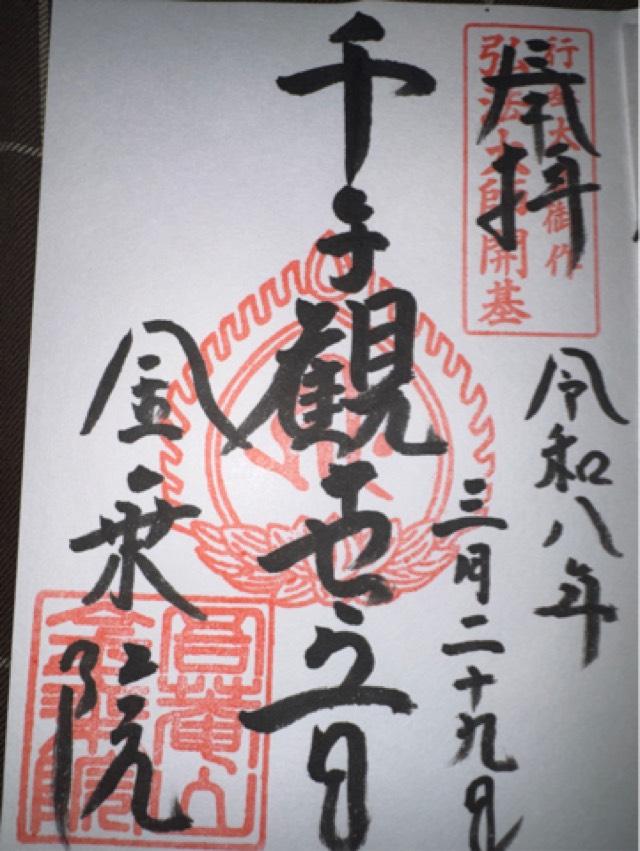 奉拝
行基大 御作
弘法大師開基
令和八年
三月二十九日
千手観世音
金乗院
吾菴山
金乘院